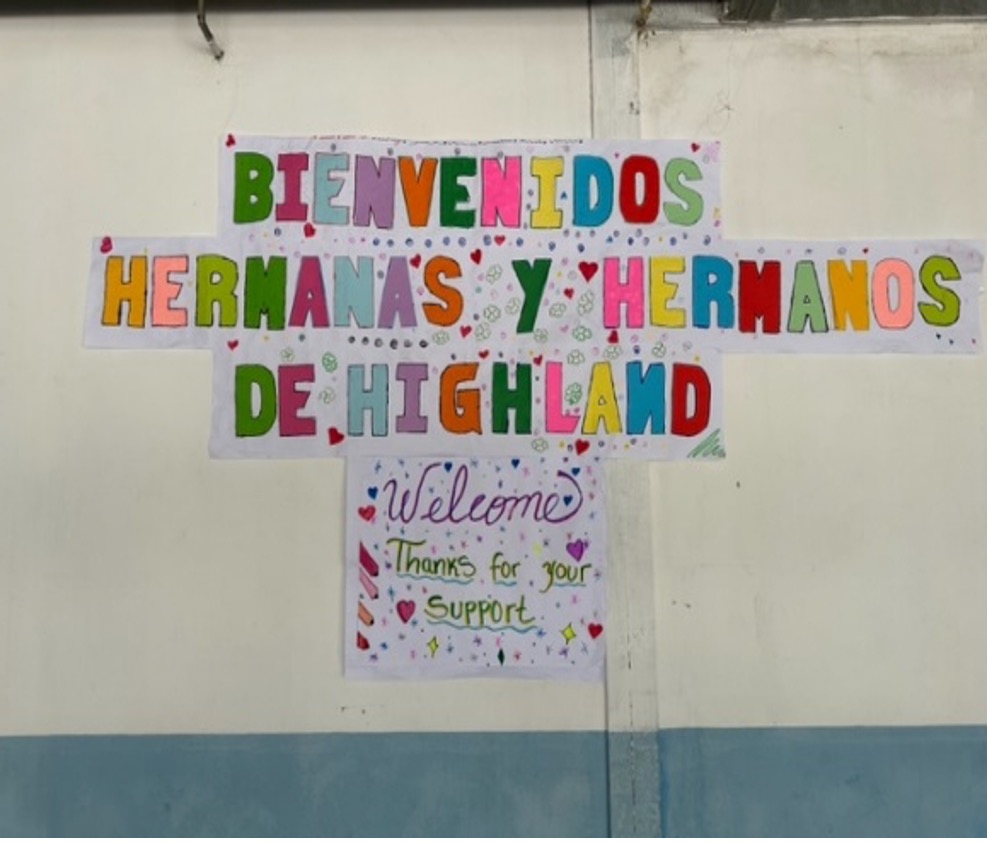 BIENVENIDOS
HERMANAS Y HERMANOS
DE HIGHLAND
Welcome
Thanks for your
Support